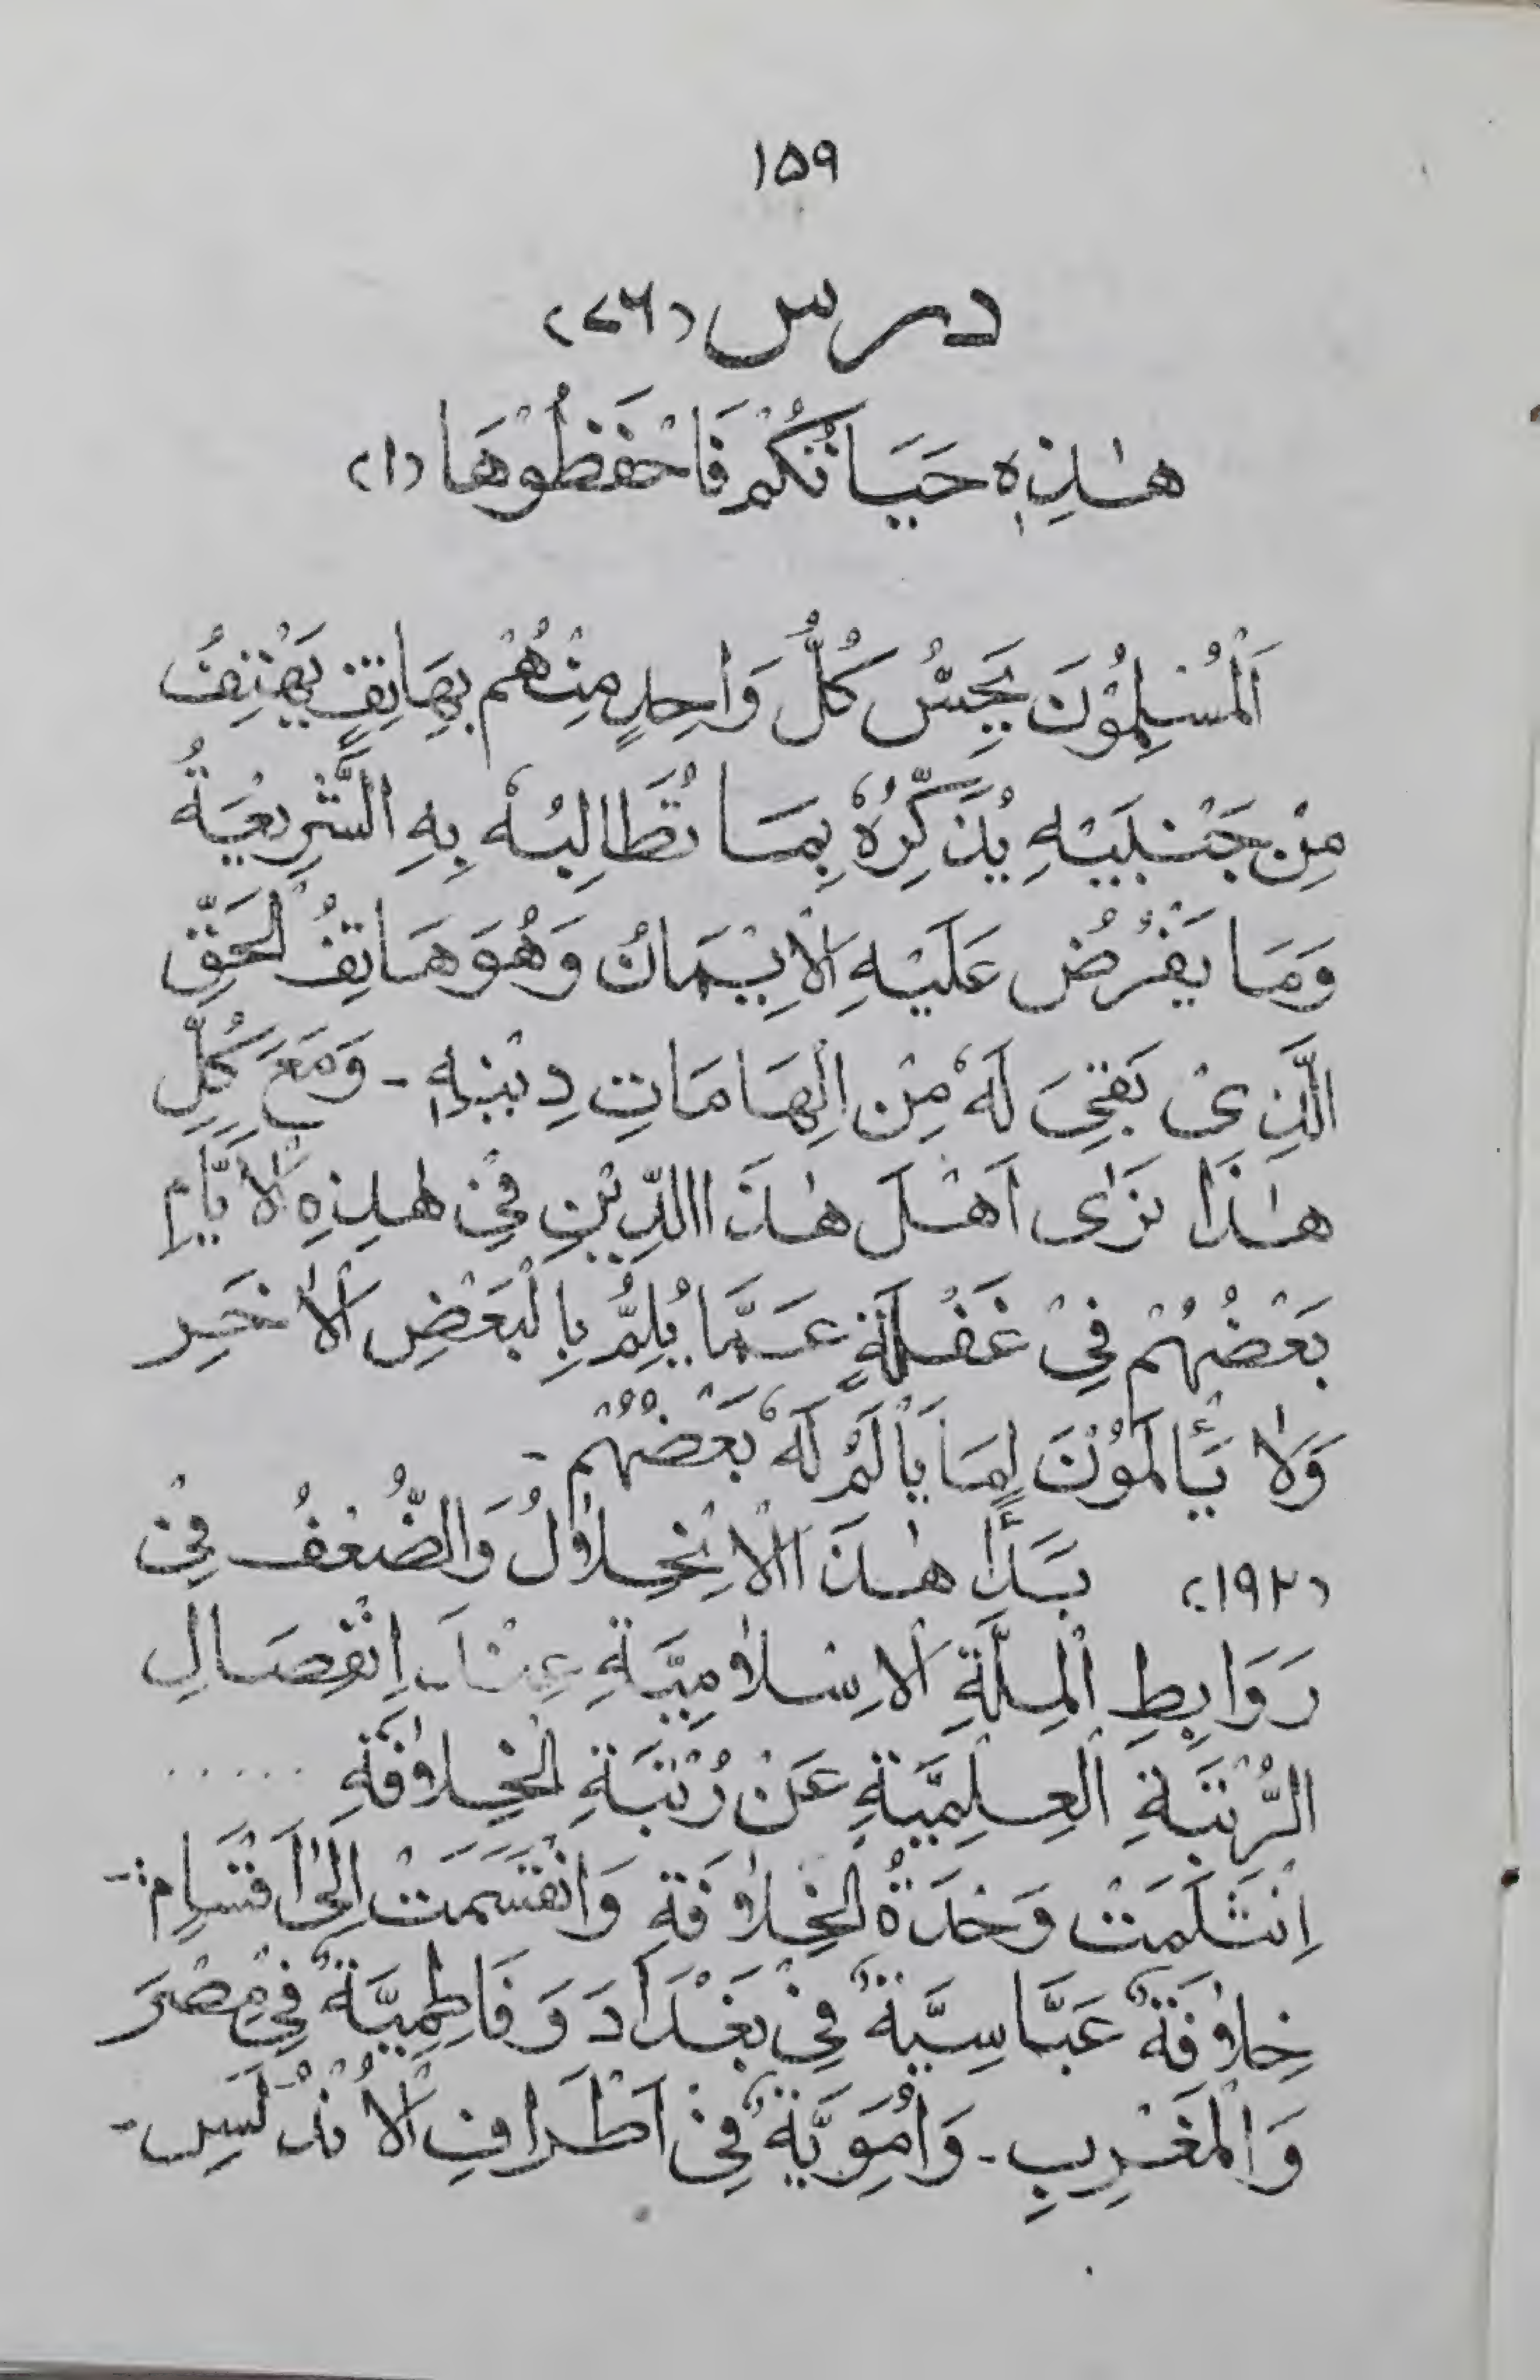 ۱۵۹
درس (۷۶)
هٰذِهٖ حَيَاتُكُمْ فَاحْفَظُوْهَا (۱)
اَلْمُسْلِمُوْنَ يَحِسُّ كُلُّ وَاحِدٍ مِنْهُمْ بِهَاتِفٍ يَهْتِفُ
مِنْ جَنْبَيْهِ يُذَكِّرُهٗ بِمَا تُطَالِبُهٗ بِهِ الشَّرِيْعَةُ
وَمَا يَفْرُضُ عَلَيْهِ الْاِيْمَانُ وَهُوَ هَاتِفُ الْحَقِّ
الَّذِىْ بَقِىَ لَهٗ مِنْ اِلْهَامَاتِ دِيْنِهٖ - وَمَعَ كُلِّ
هٰذَا نَرٰى اَهْلَ هٰذَا الدِّيْنِ فِىْ هٰذِهِ الْاَيَّامِ
بَعْضُهُمْ فِىْ غَفْلَةٍ عَمَّا يُلِمُّ بِالْبَعْضِ الْاٰخَرِ
وَلَا يَأْلَمُوْنَ لِمَا يَأْلَمُ لَهٗ بَعْضُهُمْ -
(۱۹۲) بَدَأَ هٰذَا الْاِنْحِلَالُ وَالضُّعْفُ فِىْ
رَوَابِطِ الْمِلَّةِ الْاِسْلَامِيَّةِ عِنْدَ اِنْفِصَالِ
الرُّتْبَةِ الْعِلْمِيَّةِ عَنْ رُتْبَةِ الْخِلَافَةِ ......
اِنْثَلَمَتْ وَحْدَةُ الْخِلَافَةِ وَانْقَسَمَتْ اِلٰى اَقْسَامٍ :-
خِلَافَةٌ عَبَّاسِيَّةٌ فِىْ بَغْدَادَ وَفَاطِمِيَّةٌ فِىْ مِصْرَ
وَالْمَغْرِبِ - وَاُمَوِيَّةٌ فِىْ اَطْرَافِ الْاُنْدُلَسِ -